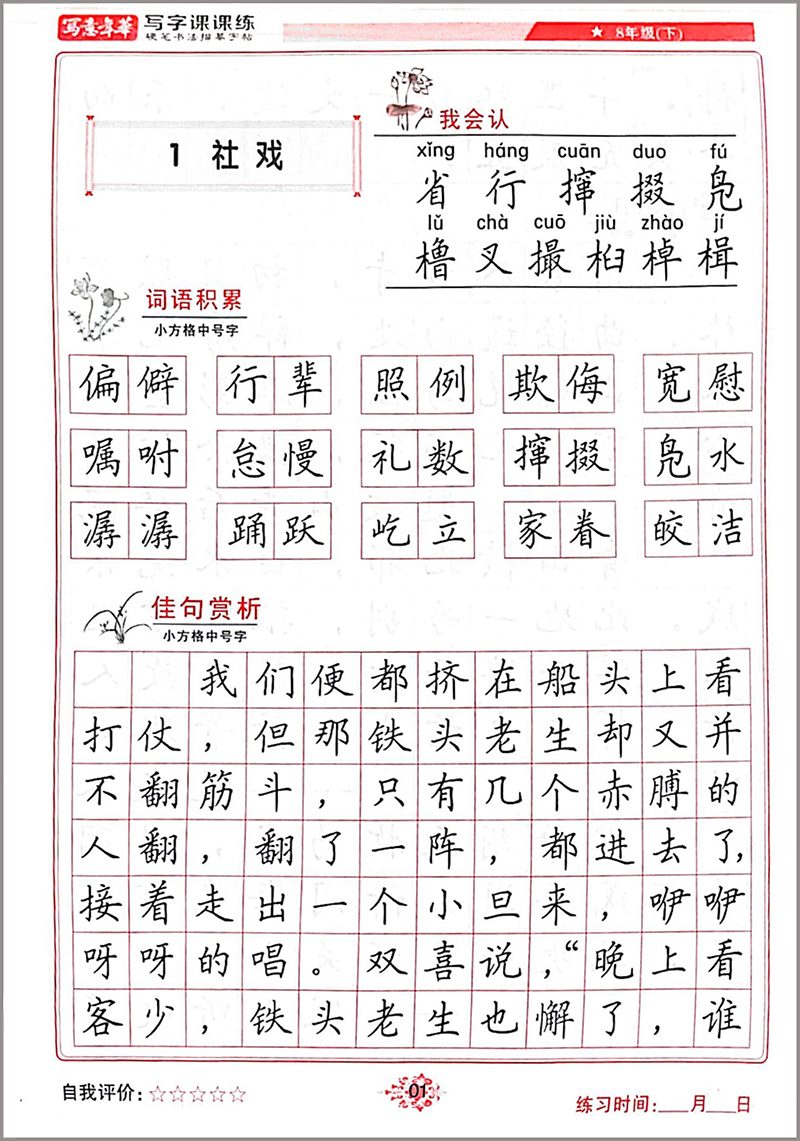 写意年华 写字课课练
硬笔书法描摹字帖
★ 8年级(下)
1 社戏
我会认
xǐng háng cuān duo fú
省 行 撺 掇 凫
lǔ chà cuō jiù zhào jí
橹 叉 撮 桕 棹 楫
词语积累
小方格中号字
偏僻 行辈 照例 欺侮 宽慰
嘱咐 怠慢 礼数 撺掇 凫水
潺潺 踊跃 屹立 家眷 皎洁
佳句赏析
小方格中号字
我们便都挤在船头上看
打仗，但那铁头老生却又并
不翻筋斗，只有几个赤膊的
人翻，翻了一阵，都进去了，
接着走出一个小旦来，咿咿
呀呀的唱。双喜说，“晚上看
客少，铁头老生也懈了，谁
自我评价：☆☆☆☆☆
01
练习时间：___月___日